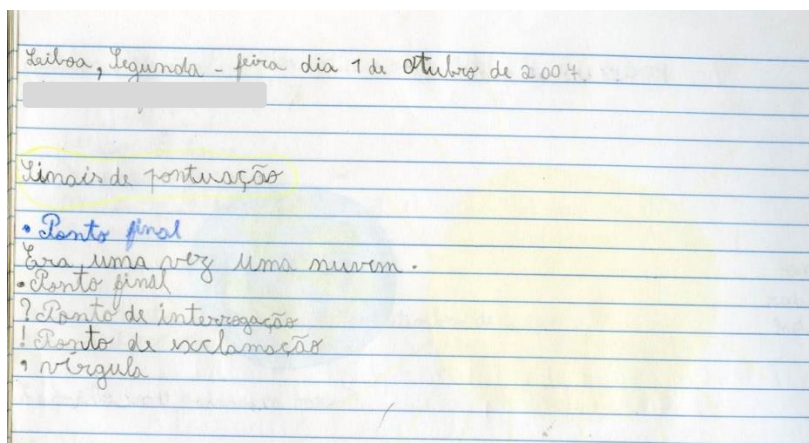 Lisboa, Segunda - feira dia 1 de Otubro de 2007.
Sinais de pontuação
• Ponto final
Era uma vez uma nuvem.
. Ponto final
? Ponto de interrogação
! Ponto de exclamação
, vírgula